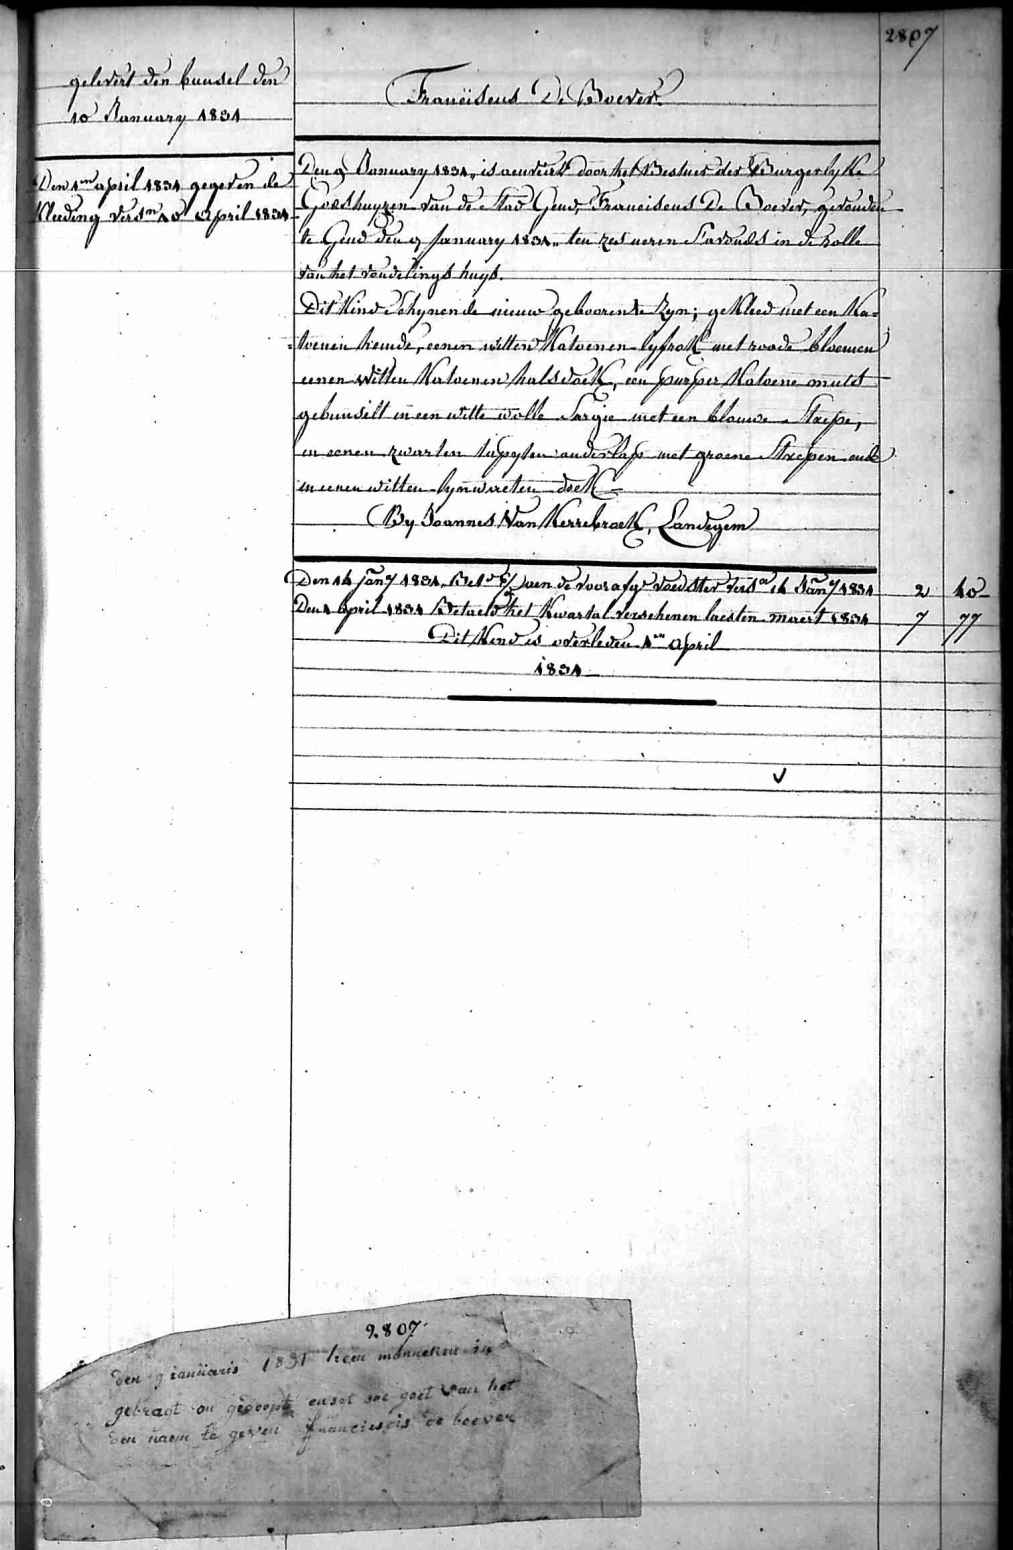 2807
gelevert den bunsel den
10 January 1831
Franciscus De Boever
Den 1en april 1831 gegeven de
Kleeding versn 10 April 1831
Den 9 January 1831, is aenveird door het Bestuer der Burgerlyke
Godshuyzen van de Stad Gend, Franciscus De Boever, gevonden
te Gend den 9 January 1831 „ ten zes ueren s'avonds in de rolle
van het vondelings huys.
Dit Kind schynende nieuw gebooren te zyn; gekleed met een Ka=
=toenen hemde, eenen witten Katoenen lyfrok met roode bloemen
eenen witten Katoenen halsdoek, een purper Katoene muts
gebunsilt in een witte wolle Sargie met een blauwe Strepe,
in eenen zwarten tapyten onderlap met groene Strepen ende
in eenen witten lynwaeten doek
By Joannes Van Kerrebroek, Landegem
Den 14 Jany 1831, Bete aen de voorafge voedster versn 14 Jany 1831 2 40
Den 4 April 1831 Betaeld het Kwartal verschenen laesten maert 1831 7 77
Dit Kind is overleden 1en April
1831
2.807
den 9 ianuaris 1831 heen manneken in
gebragt on gedoopt ensot soe goet van het
den naem te geven franciescis de boever